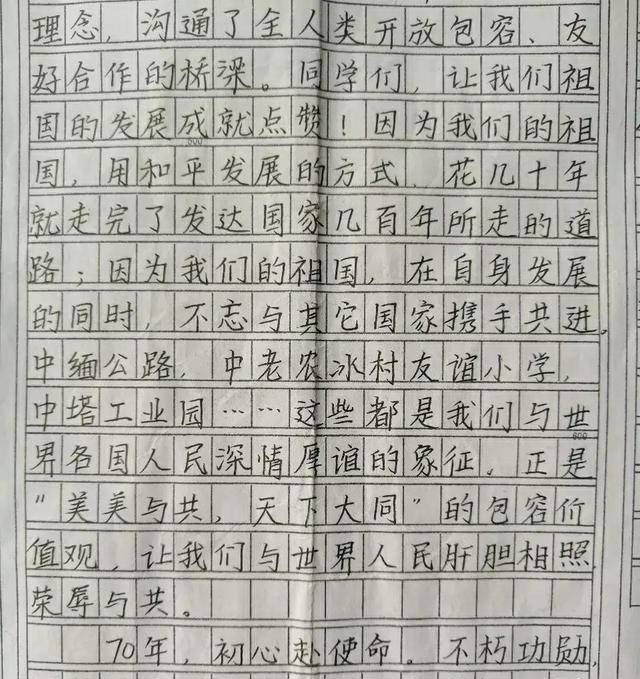 理念，沟通了全人类开放包容、友
好合作的桥深。同学们，让我们祖
国的发展成就点赞！因为我们的祖
600
国，用和平发展的方式，花几十年
就走完了发达国家几百年所走的道
路；因为我们的祖国，在自身发展
的同时，不忘与其它国家携手共进，
中缅公路，中老农冰村友谊小学，
中塔工业园……这些都是我们与世
800
界各国人民深情厚谊的象征，正是
“美美与共，天下大同”的包容价
值观，让我们与世界人民肝胆相照，
荣辱与共。
70年，初心赴使命。不朽功勋，